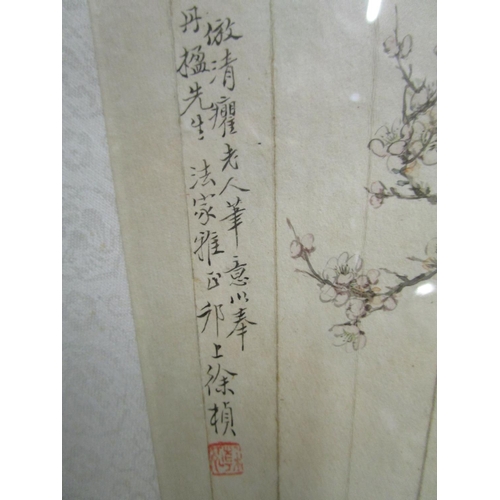 倣清癯老人筆意以奉
丹楹先生 法家雅正 邗上徐楨